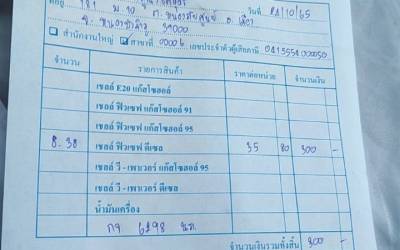 ที่อยู่ 181 ม.
วันที่ 21/10/65
จ. หนองบัวลำภู 39000
สำนักงานใหญ่ ✓ สาขาที่ 00006 เลขประจำตัวผู้เสียภาษี
จำนวน รายการสินค้า ราคาต่อหน่วย จำนวนเงิน
เชลล์ E20 แก๊สโซฮอล์
เชลล์ ฟิวเซฟ แก๊สโซฮอล์ 91
เชลล์ ฟิวเซฟ แก๊สโซฮอล์ 95
8.38 เชลล์ ฟิวเซฟ ดีเซล 35 80 300 -
เชลล์ วี - เพาเวอร์ แก๊สโซฮอล์ 95
เชลล์ วี - เพาเวอร์ ดีเซล
น้ำมันเครื่อง
กจ 6198
จำนวนเงินรวมทั้งสิ้น 300 -